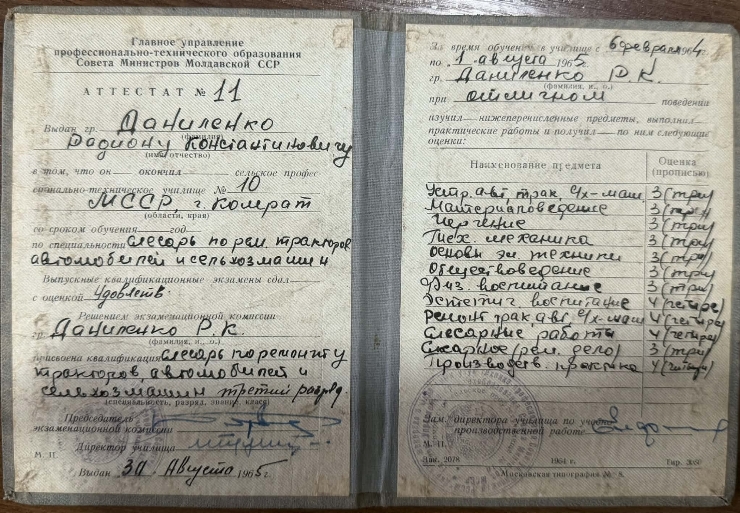 Главное управление
профессионально-технического образования
Совета Министров Молдавской ССР
АТТЕСТАТ № 11
Выдан гр. Даниленко
(фамилия)
Родиону Константиновичу
(имя, отчество)
в том, что он окончил сельское профес
сионально-техническое училище № 10
МССР г. Комрат
(области, края)
со сроком обучения год
по специальности слесарь по рем. тракторов
автомобилей и сельхозмашин
Выпускные квалификационные экзамены сдал
с оценкой Удовлетв.
Решением экзаменационной комиссии
гр. Даниленко Р.К.
(фамилия, и., о.)
присвоена квалификация слесарь по ремонту
тракторов, автомобилей и
сельхозмашин третий разряд.
(специальность, разряд, звание, класс)
Председатель
экзаменационной комиссии
Директор училища
М. П.
Выдан 30 Августа 1965 г.
За время обучения в училище с 6 февраля 1964
по 1 августа 1965 г.
гр. Даниленко Р.К.
(фамилия, и., о.)
при отличном поведении
изучил нижеперечисленные предметы, выполнил
практические работы и получил по ним следующие
оценки:
Наименование предмета Оценка (прописью)
Устр. авт, трак. с/х-маш. 3 (три)
Материаловедение 3 (три)
Черчение 3 (три)
Тех. механика 3 (три)
Основы эл. техники 3 (три)
Обществоведение 3 (три)
Физ. воспитание 3 (три)
Эстетич. воспитание 4 (четыре)
Ремонт трак, авт, с/х-маш 4 (четыре)
Слесарные работы 4 (четыре)
Сварное (рем. дело) 3 (три)
Производств. практика 4 (четыре)
Зам. директора училища по учебно-
производственной работе
М. П.
Зак. 2078 1964 г. Тир. 3000
Московская типография № 8.